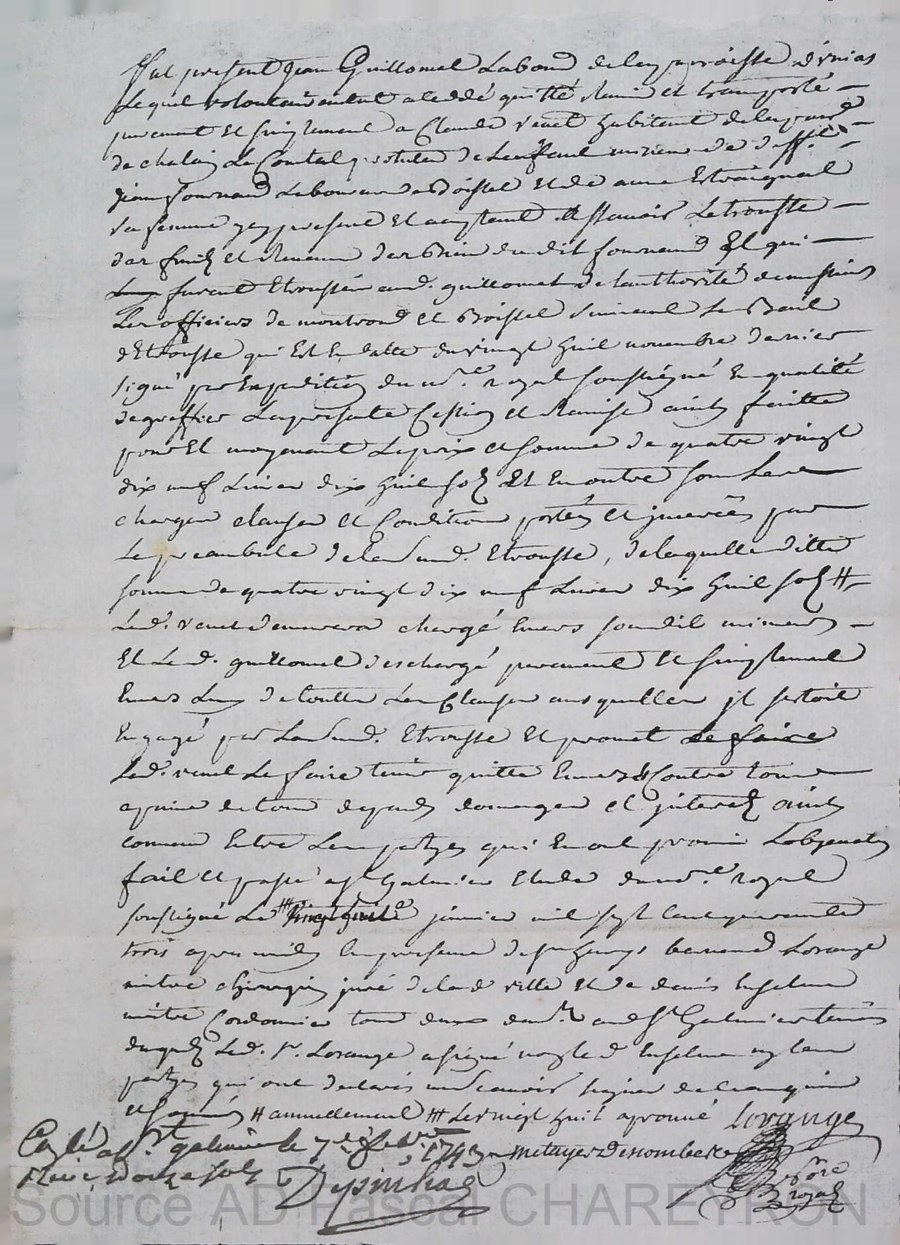 fut present Jean Guillomet Laboud de la paroisse d'Unias
Lequel volontairement a ceddé quitté Remis et transporté
purement et simplement a Claude venet habitant de la parr.
de chalain Le Comtal de Les mineurs de deff.t
Jean fournand Laboureur de Boisset et de anne
Sa femme ycy present et acceptant Scavoir Letrousse
des fruits et Revenus des Biens dudit fournand Et qui
furent Etroussés aud. guillomet de Lauthorité de messieurs
Les officiers de montrond et Boisset Suivant Le Bail
d'Etrousse qui Est En datte du vingt huit novembre dernier
signé par Expedition du no.re royal soussigné En qualité
de greffier La presente Cession et Remise ainsy faitte
pour Et moyenant Le prix et somme de quatre vingt
dix neuf Livres dix huit sols Et En outre sous Les
charges clauses et Conditions portées et inserées par
Le preambule de la Susd. Etrousse, de laquelle ditte
somme de quatre vingt dix neuf Livres dix huit sols #
Led. venet demeurera chargé Envers Lesdits mineurs
Et Led. guillomet deschargé purement et simplement
Envers Eux de touttes Les Clauses ausquelles il s'estoit
Engagé par La Susd. Etrousse Et promet Le faire
Led. venet Le faire tenir quitte Envers & Contre tous
a peine de tous depends domages et interests ainsy
convenu Entre Les partyes qui En ont promis Lobservation
fait et passé a st Galmier Etude du no.re royal
soussigné Le ### vingt huit janvier mil sept cent quarante
trois apres midy En presence de sr Lorange
maitre chirurgien juré de lad. ville Et de denis
maitre Cordonnier tous deux dem.t aud. St Galmier temoins
desquels Led. sr. Lorange a signé non led. ny Les
partyes qui ont declaré ne Scavoir signer de ce enquis
et sommés # annuellement ### Le vingt huit aprouvé Lorange
Conllé a st galmier le 7e febvrier 1743
Reçu douze sols
no.re
royal
Source AD Pascal CHAREYRON